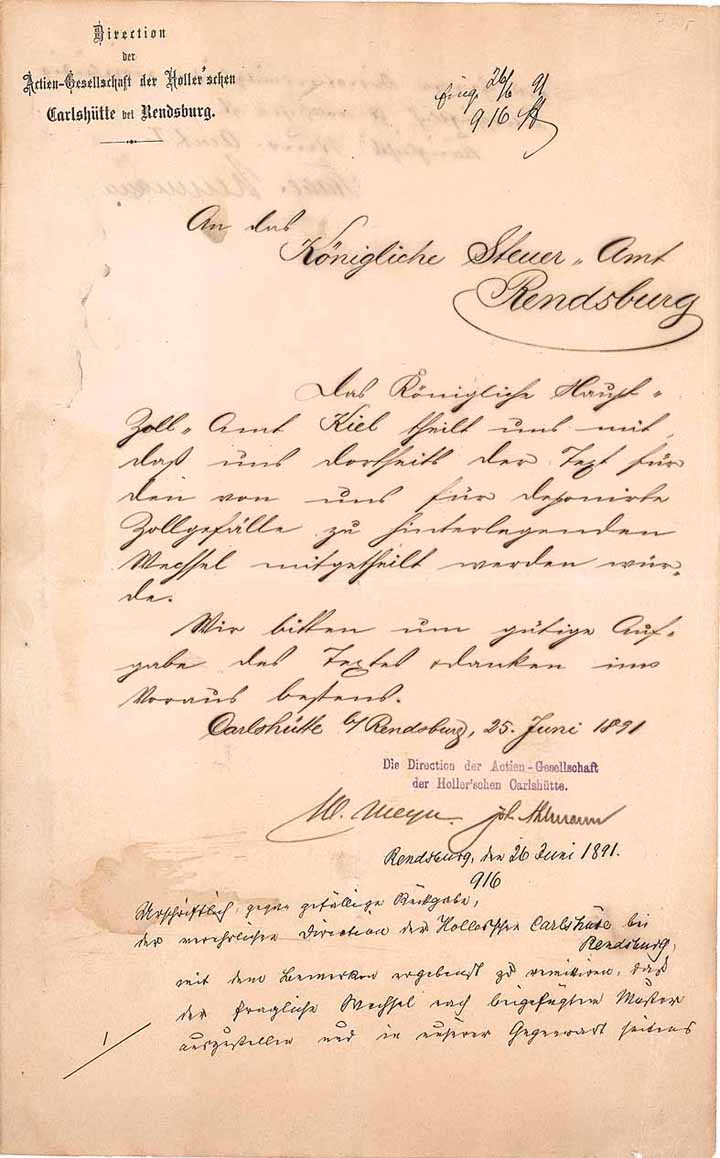 Direction
der
Actien-Gesellschaft der Holler'schen
Carlshütte bei Rendsburg.
Eing. 26/6 91
916
An das
Königliche Steuer-Amt
Rendsburg
Das Königliche Haupt-
Zoll-Amt Kiel theilt uns mit,
daß uns dortseits der Text für
den von uns für deponirte
Zollgefälle zu hinterlegenden
Wechsel mitgetheilt werden wür-
de.
Wir bitten um gütige Auf-
gabe des Textes & danken im
Voraus bestens.
Carlshütte b/Rendsburg, 25. Juni 1891
Die Direction der Actien-Gesellschaft
der Holler'schen Carlshütte.
M. Meyn. Joh. Ahlmann
Rendsburg, den 26 Juni 1891.
916
Urschriftlich, gegen gefällige Rückgabe,
der verehrlichen Direction der Holler'schen Carlshütte bei
Rendsburg,
mit dem Bemerken ergebenst zu remittiren, daß
der fragliche Wechsel nach beigefügtem Muster
auszustellen und in unserer Gegenwart seitens
1